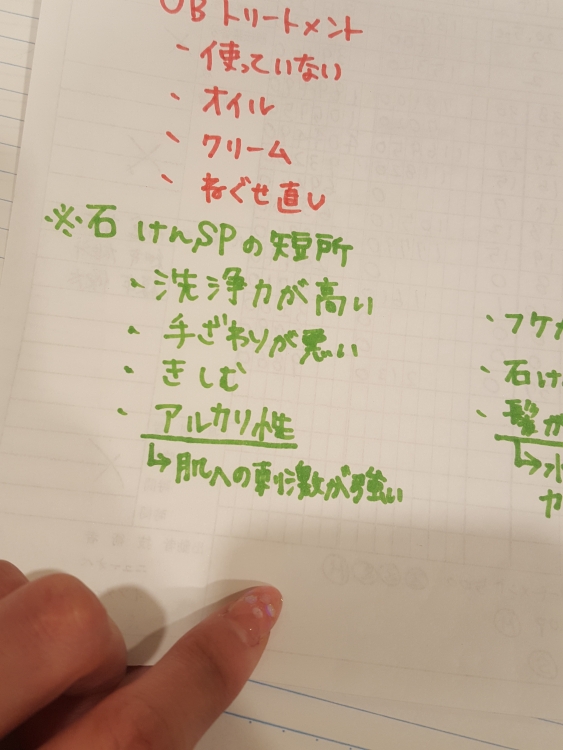 OBトリートメント
、使っていない
、オイル
、クリーム
、ねぐせ直し
※石けんSPの短所
、洗浄力が高い
、手ざわりが悪い
、きしむ
、アルカリ性
↳肌への刺激が強い
、フケカ
、石け
、髪が
↳水
カ